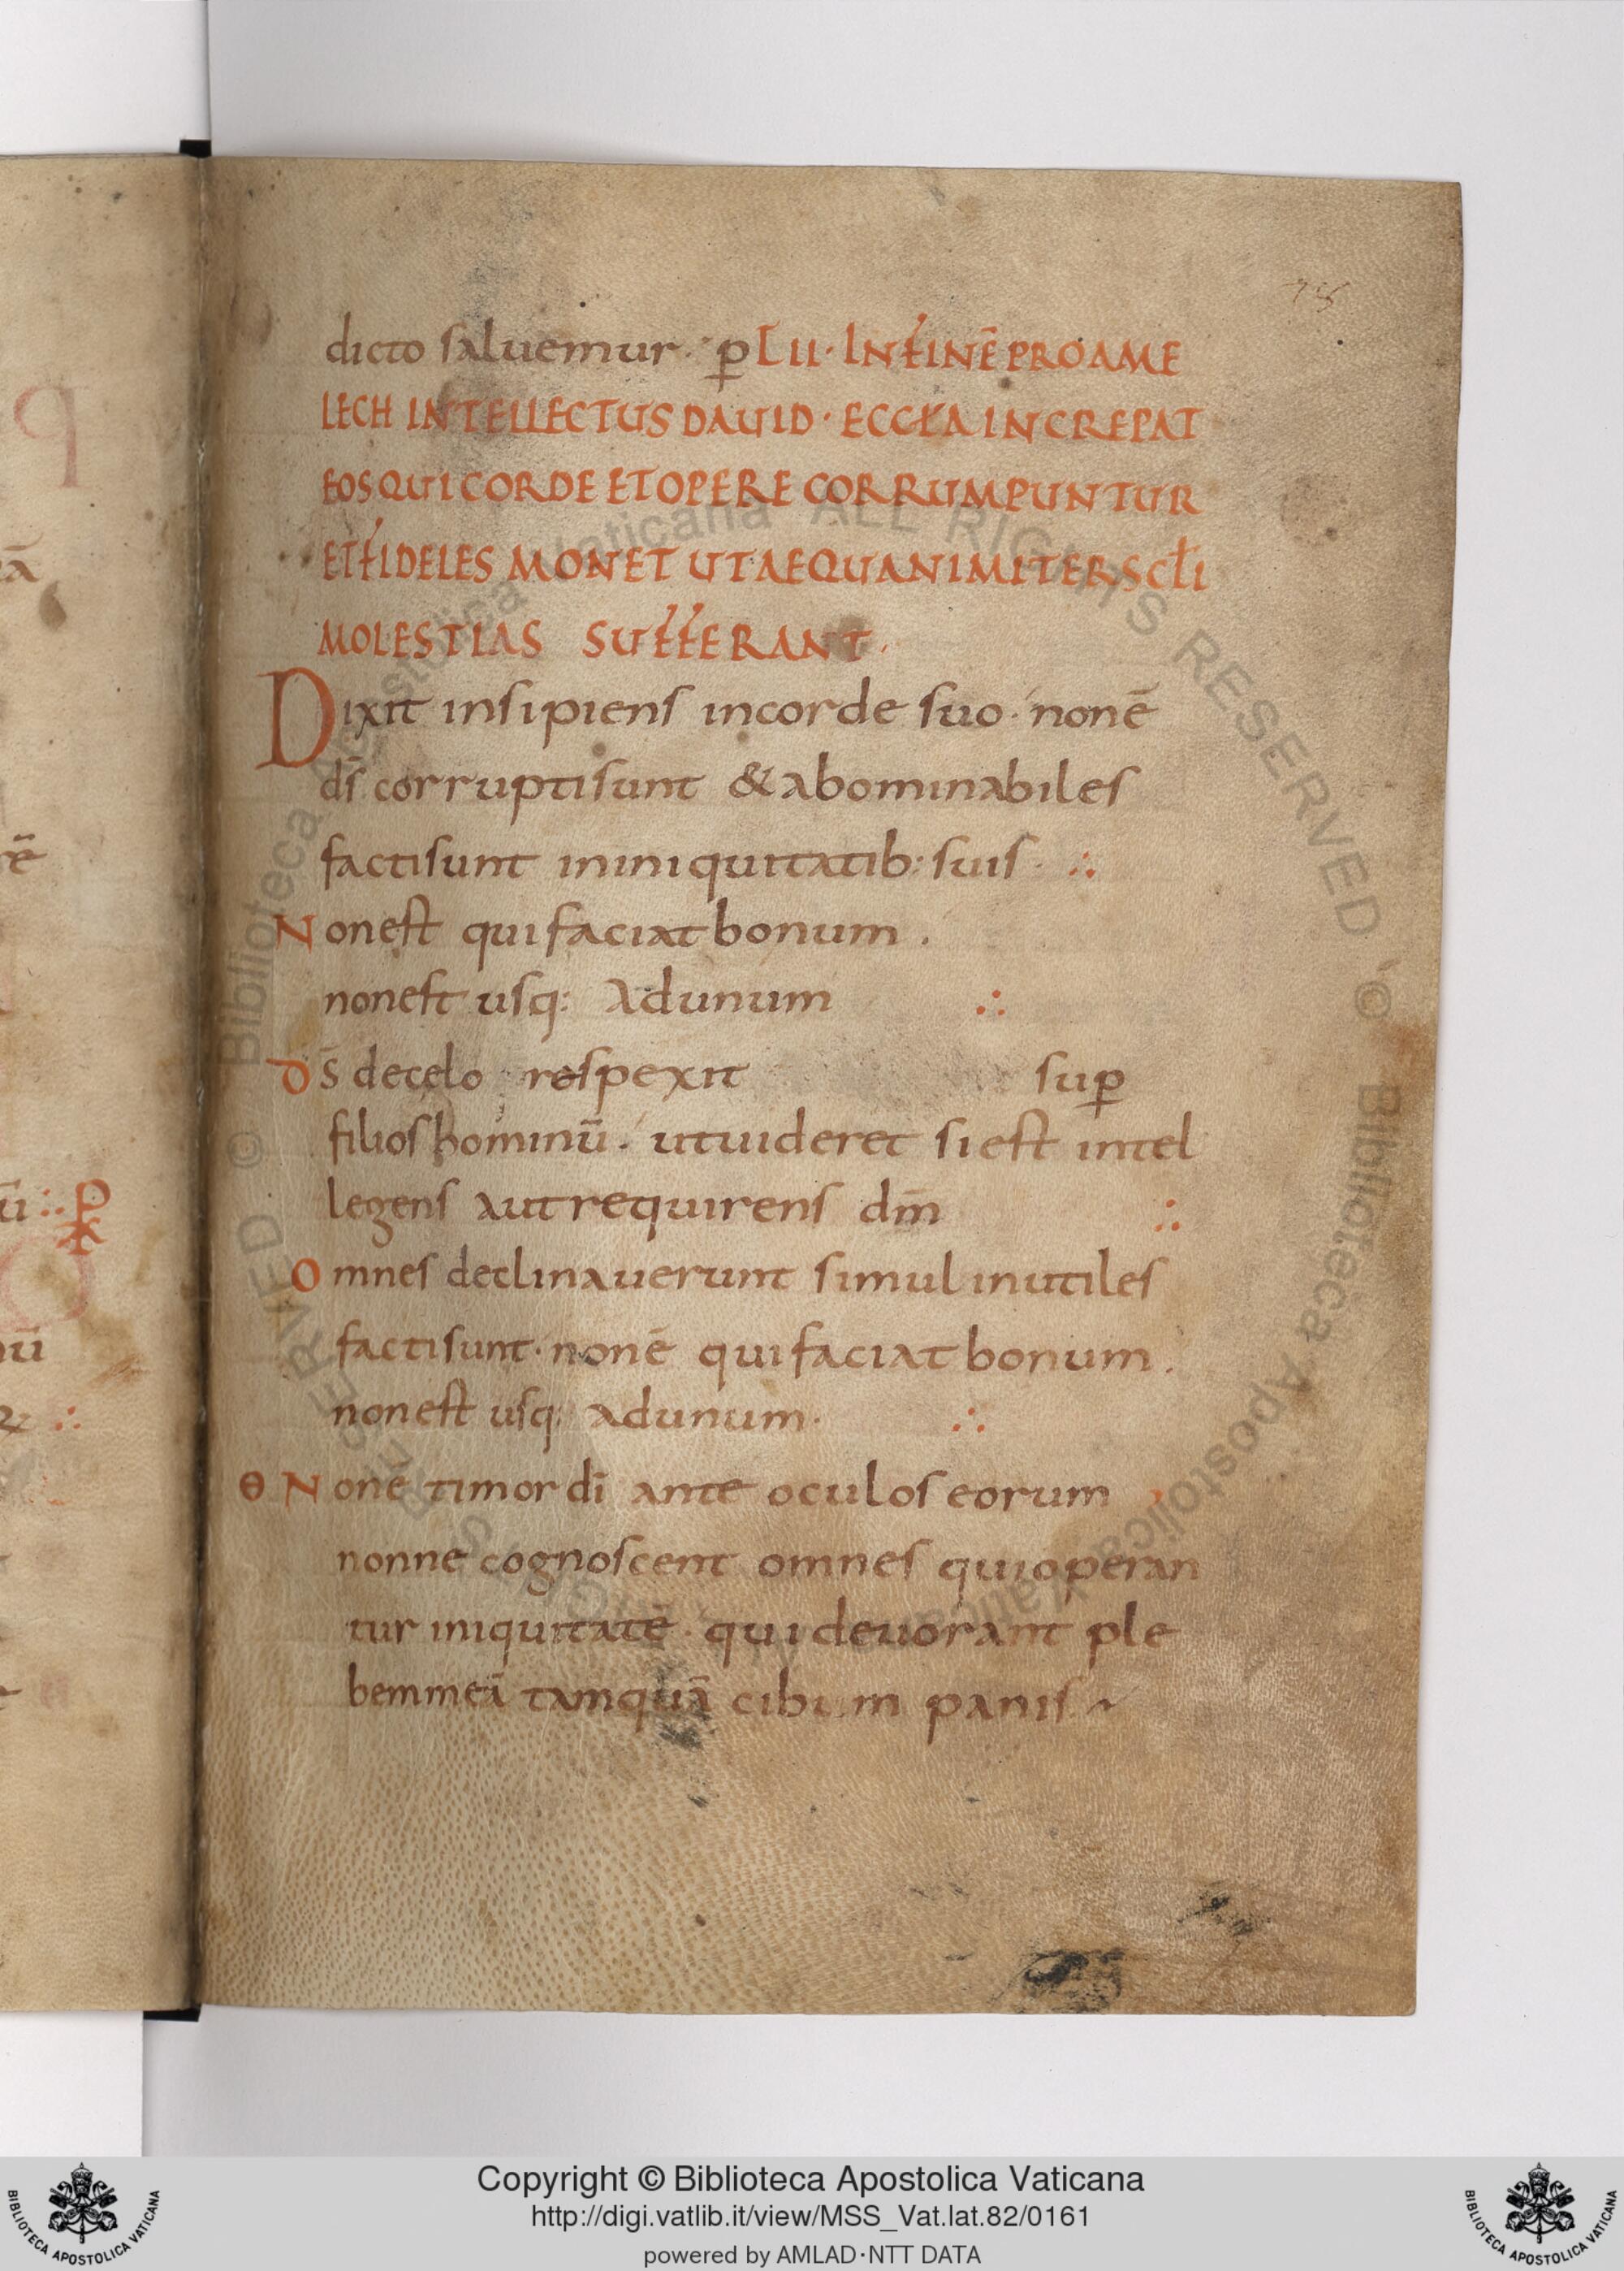 dicto saluemur · p̲ LII · IN FINĒ PRO AME
LECH INTELLECTUS DAUID · ECCLA INCREPAT
EOS QUI CORDE ET OPERE CORRUMPUNTUR
ET FIDELES MONET UT AEQUANIMITER SCLI
MOLESTIAS SUFFERANT ·
Dixit insipiens in corde suo · non ē
ds̄ corrupti sunt & abominabiles
facti sunt in iniquitatib: suis · ∴
Non est qui faciat bonum .
non est usq: ad unum ∴
ds̄ de celo respexit sup̲
filios hominū · ut uideret si est intel
legens aut requirens dm̄ ∴
Omnes declinauerunt simul inutiles
facti sunt · non ē qui faciat bonum .
non est usq: ad unum · ∴
θ Non ē timor dī ante oculos eorum
nonne cognoscent omnes qui operan
tur iniquitatē · qui deuorant ple
bem meā tamquā cibum panis ~
Copyright © Biblioteca Apostolica Vaticana
http://digi.vatlib.it/view/MSS_Vat.lat.82/0161
powered by AMLAD·NTT DATA
BIBLIOTECA APOSTOLICA VATICANA
BIBLIOTECA APOSTOLICA VATICANA